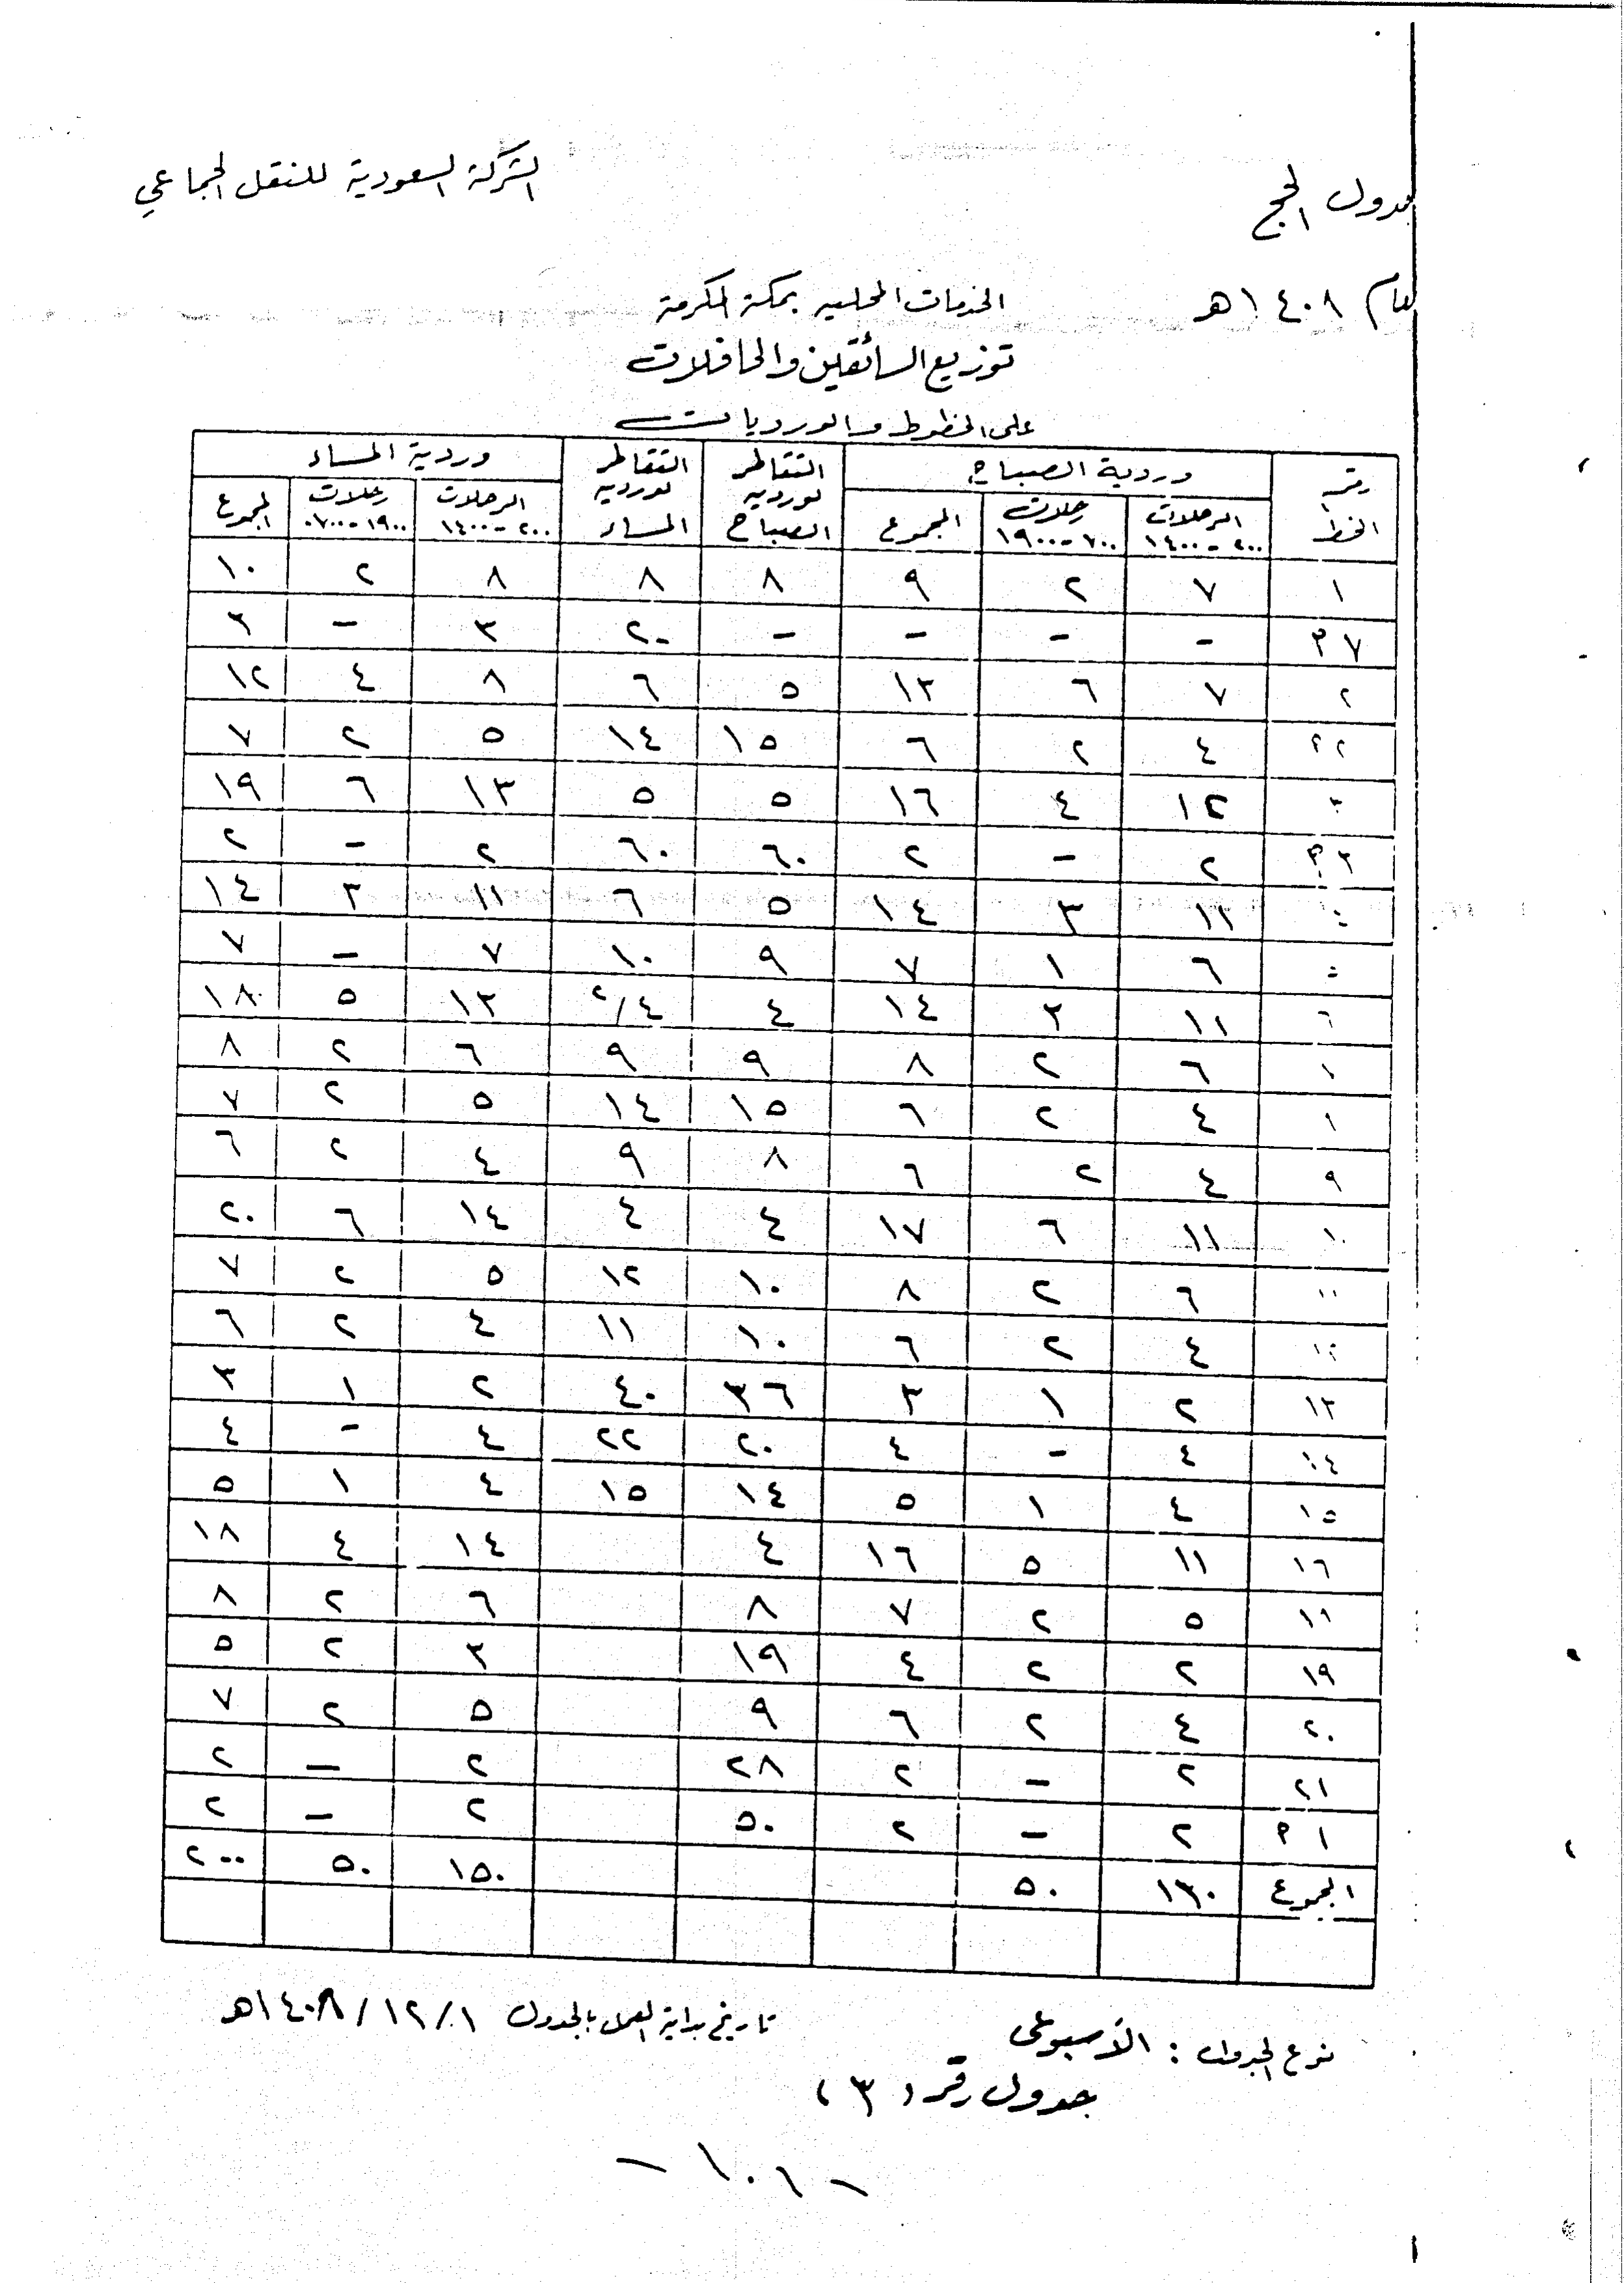 الشركة السعودية للنقل الجماعي
جدول الحج
لعام ١٤٠٨هـ
الخدمات المحلية بمكة المكرمة
توزيع السائقين والحافلات
على الخطوط والورديات
رقم الخط | وردية الصباح | التقاطر لوردية الصباح | التقاطر لوردية المساء | وردية المساء
الرحلات ٢٠٠-١٤٠٠ | رحلات ٧٠٠-١٩٠٠ | المجموع | الرحلات ٢٠٠-١٤٠٠ | رحلات ١٩٠٠-٠٧٠٠ | المجموع
١ | ٧ | ٢ | ٩ | ٨ | ٨ | ٨ | ٢ | ١٠
٧ م | - | - | - | - | ٢٠ | ٣ | - | ٣
٢ | ٧ | ٦ | ١٣ | ٥ | ٦ | ٨ | ٤ | ١٢
٤ | ٢ | ٦ | ١٥ | ١٤ | ٥ | ٢ | ٧
٣ | ١٢ | ٤ | ١٦ | ٥ | ٥ | ١٣ | ٦ | ١٩
٣ م | ٢ | - | ٢ | ٦٠ | ٦٠ | ٢ | - | ٢
١١ | ٣ | ١٤ | ٥ | ٦ | ١١ | ٣ | ١٤
٥ | ٦ | ١ | ٧ | ٩ | ١٠ | ٧ | - | ٧
٦ | ١١ | ٣ | ١٤ | ٤ | ٤/٢ | ١٣ | ٥ | ١٨
٦ | ٢ | ٨ | ٩ | ٩ | ٦ | ٢ | ٨
٤ | ٢ | ٦ | ١٥ | ١٤ | ٥ | ٢ | ٧
٩ | ٤ | ٢ | ٦ | ٨ | ٩ | ٤ | ٢ | ٦
١٠ | ١١ | ٦ | ١٧ | ٤ | ٤ | ١٤ | ٦ | ٢٠
١١ | ٦ | ٢ | ٨ | ١٠ | ١٢ | ٥ | ٢ | ٧
١٢ | ٤ | ٢ | ٦ | ١٠ | ١١ | ٤ | ٢ | ٦
١٣ | ٢ | ١ | ٣ | ٣٦ | ٤٠ | ٢ | ١ | ٣
١٤ | ٤ | - | ٤ | ٢٠ | ٢٢ | ٤ | - | ٤
١٥ | ٤ | ١ | ٥ | ١٤ | ١٥ | ٤ | ١ | ٥
١٦ | ١١ | ٥ | ١٦ | ٤ | ١٤ | ٤ | ١٨
٥ | ٢ | ٧ | ٨ | ٦ | ٢ | ٨
١٩ | ٢ | ٢ | ٤ | ١٩ | ٣ | ٢ | ٥
٢٠ | ٤ | ٢ | ٦ | ٩ | ٥ | ٢ | ٧
٢١ | ٢ | - | ٢ | ٢٨ | ٢ | - | ٢
١ م | ٢ | - | ٢ | ٥٠ | ٢ | - | ٢
المجموع | ١٣٠ | ٥٠ | ١٥٠ | ٥٠ | ٢٠٠
نوع الجدول : الأسبوعي
تاريخ بداية العمل بالجدول ١٤٠٨/١٢/١هـ
جدول رقم (٣)
- ١٠١ -